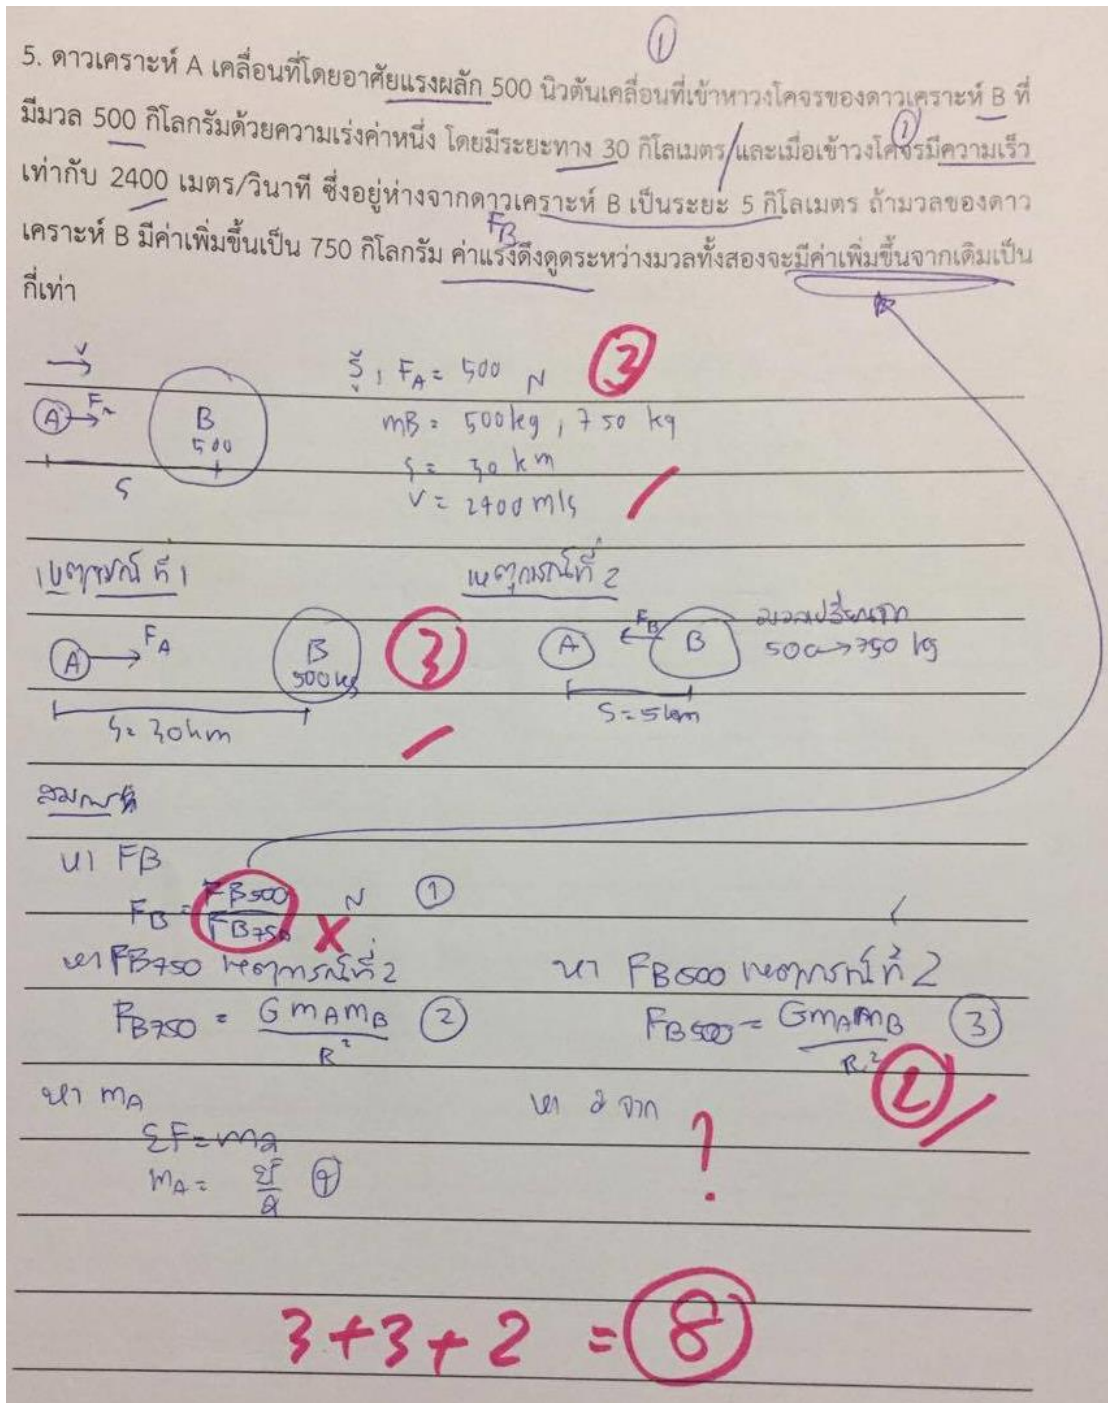 ①
5. ดาวเคราะห์ A เคลื่อนที่โดยอาศัยแรงผลัก 500 นิวตันเคลื่อนที่เข้าหาวงโคจรของดาวเคราะห์ B ที่
มีมวล 500 กิโลกรัมด้วยความเร่งค่าหนึ่ง โดยมีระยะทาง 30 กิโลเมตร/และเมื่อเข้าวงโคจรมีความเร็ว
เท่ากับ 2400 เมตร/วินาที ซึ่งอยู่ห่างจากดาวเคราะห์ B เป็นระยะ 5 กิโลเมตร ถ้ามวลของดาว
FB
เคราะห์ B มีค่าเพิ่มขึ้นเป็น 750 กิโลกรัม ค่าแรงดึงดูดระหว่างมวลทั้งสองจะมีค่าเพิ่มขึ้นจากเดิมเป็น
กี่เท่า
v
รู้, FA = 500 N ③
A B
500
mB = 500 kg, 750 kg
S = 30 km
S
v = 2400 m/s
เหตุการณ์ที่ 1 เหตุการณ์ที่ 2
A FA B 500 kg ③ A FB B
500→750 kg
S = 30 km S = 5 km
หา FB
FB = FB500 / FB750 N ① X
หา FB750 เหตุการณ์ที่ 2 หา FB500 เหตุการณ์ที่ 2
FB750 = G mA mB / R² ② FB500 = G mA mB / R² ③
②
หา mA หา a จาก ?
ΣF = ma
mA = ΣF / a ④
3+3+2 = ⑧